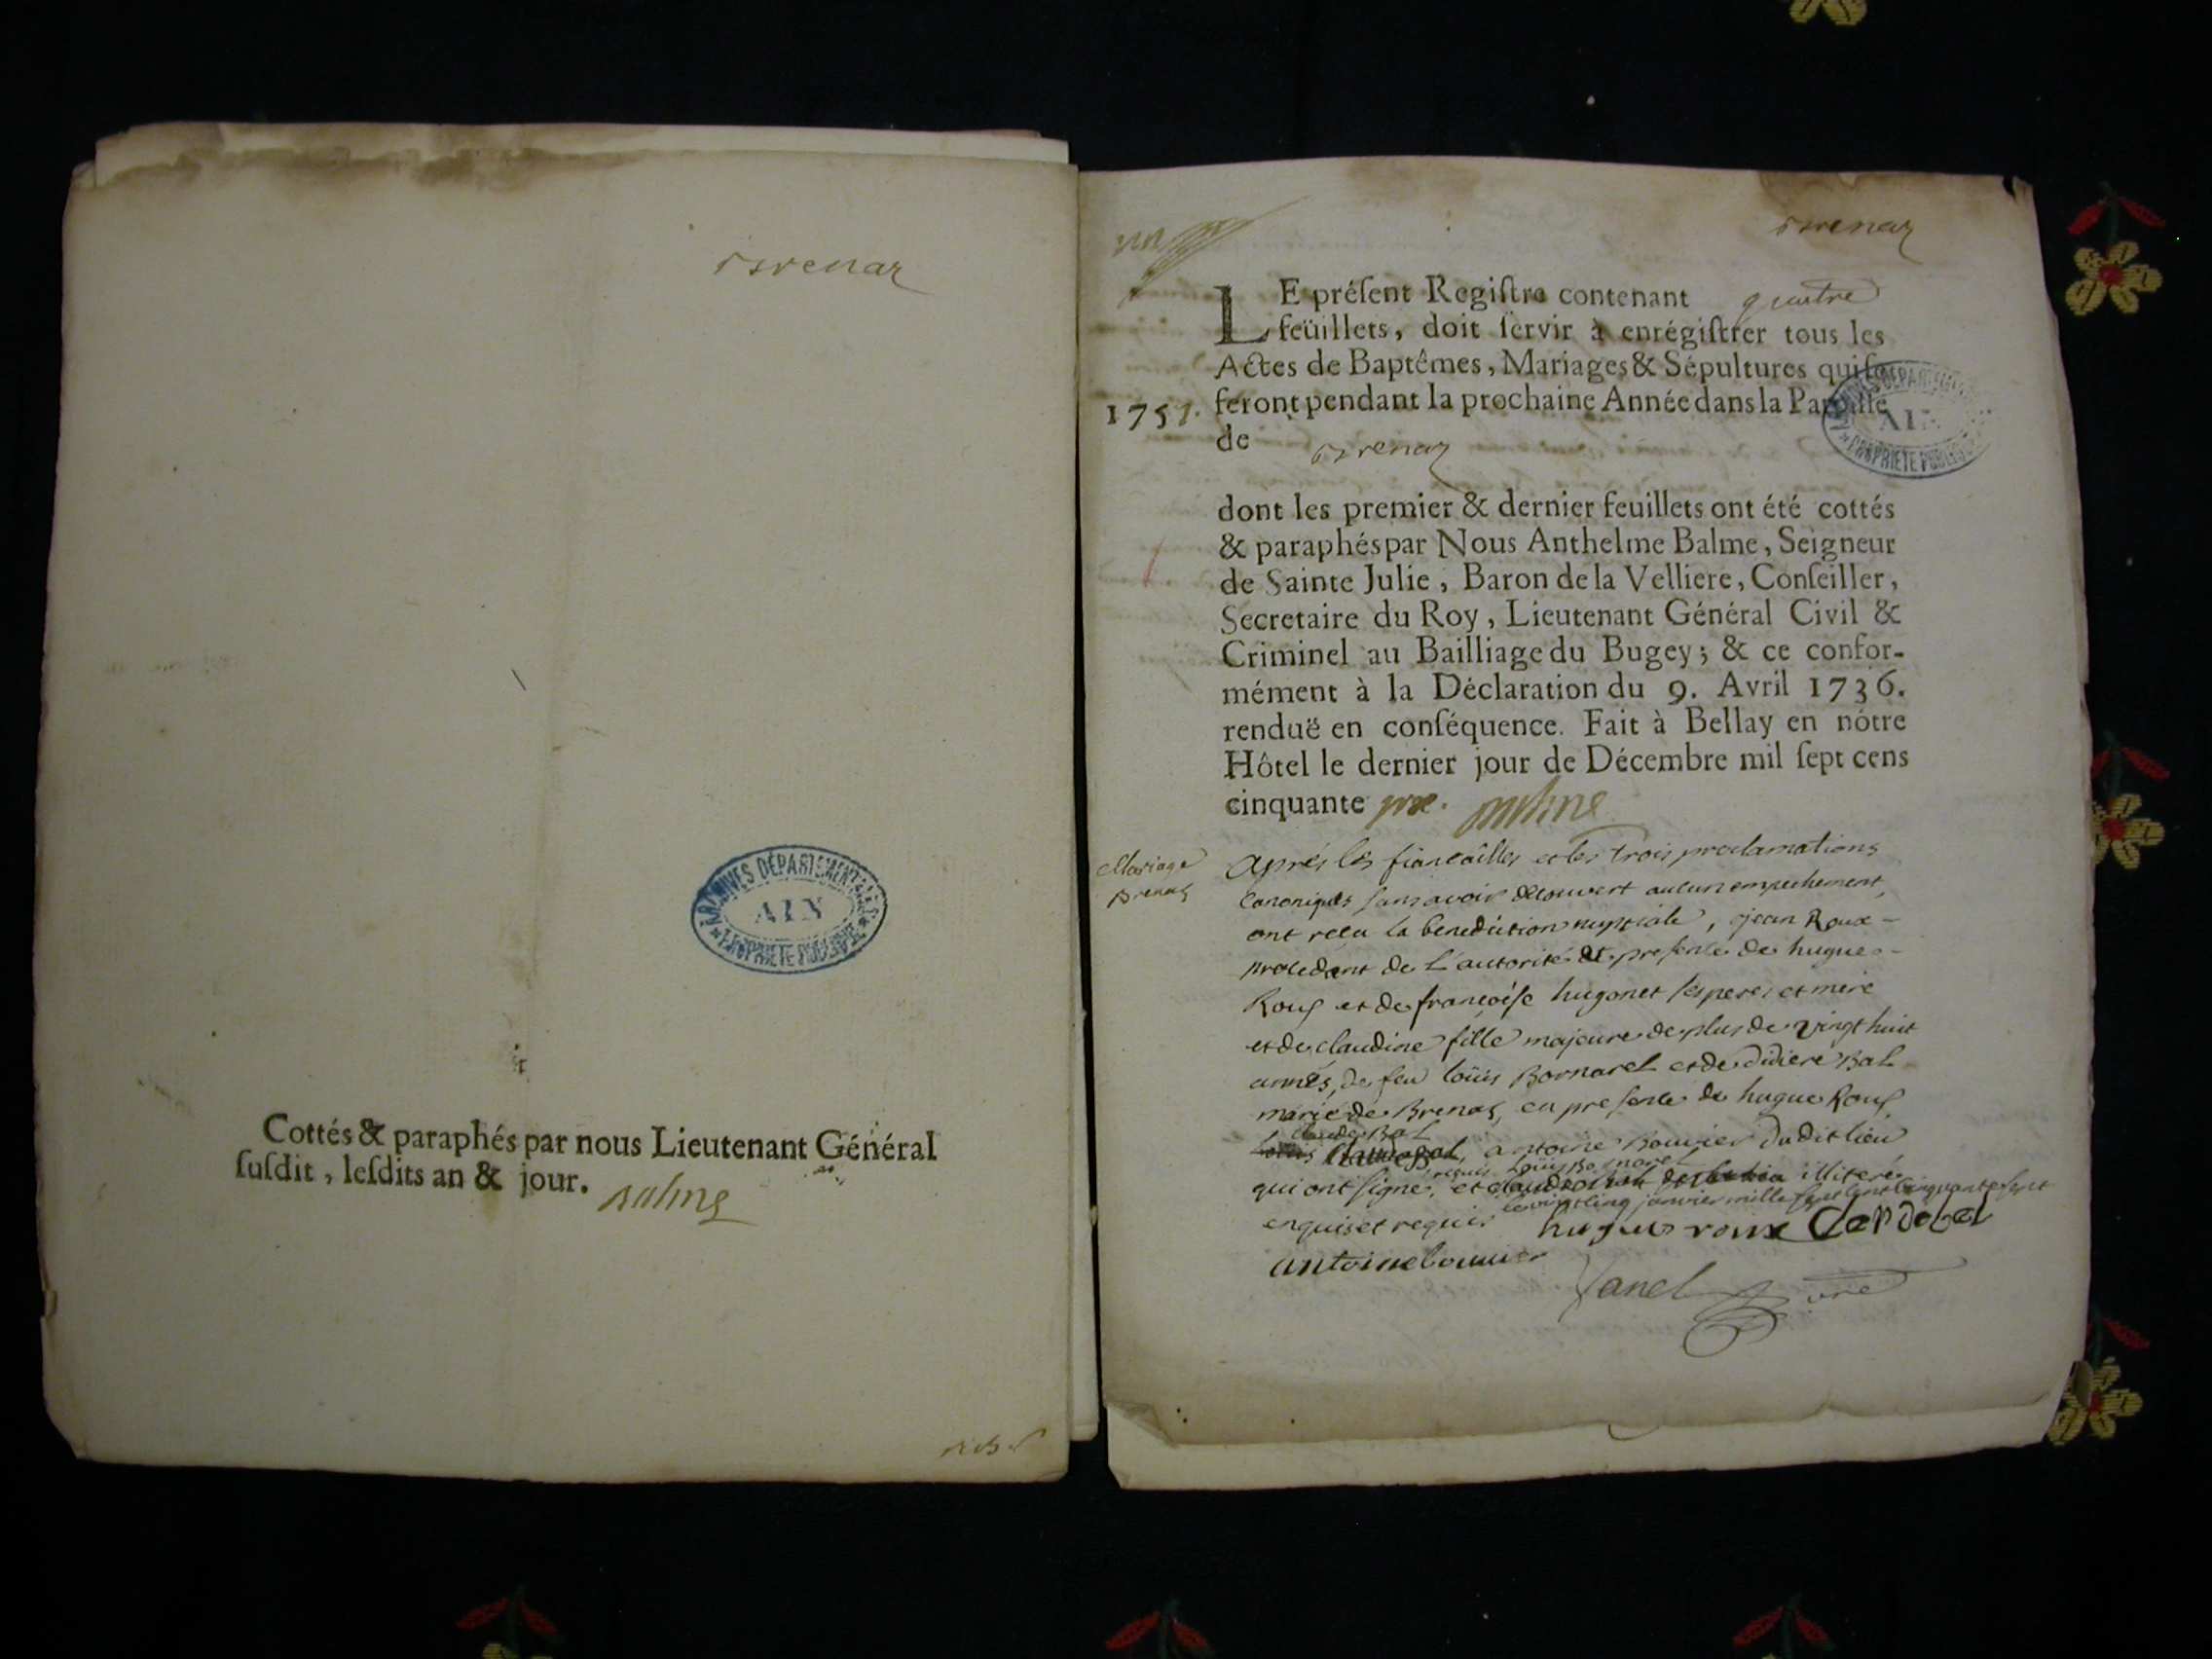 Brenaz
ARCHIVES DÉPARTEMENTALES
AIN
PROPRIÉTÉ PUBLIQUE
Cottés & paraphés par nous Lieutenant Général
ſuſdit, leſdits an & jour. Balme
Brenaz
LE préſent Regiſtre contenant quatre
feüillets, doit ſervir à enrégiſtrer tous les
Actes de Baptêmes, Mariages & Sépultures qui ſe
1757. feront pendant la prochaine Année dans la Paroiſſe
de Brenaz
AIN
PROPRIÉTÉ PUBLIQUE
dont les premier & dernier feuillets ont été cottés
& paraphés par Nous Anthelme Balme, Seigneur
de Sainte Julie, Baron de la Velliere, Conſeiller,
Secretaire du Roy, Lieutenant Général Civil &
Criminel au Bailliage du Bugey; & ce confor-
mément à la Déclaration du 9. Avril 1736.
renduë en conſéquence. Fait à Bellay en nôtre
Hôtel le dernier jour de Décembre mil ſept cens
cinquante Balme
Mariage
Brenaz
Après les fiançailles et les trois proclamations
canoniques sans avoir decouvert aucun empechement,
ont reçu la benediction nuptiale, jean Roux
procedant de l'autorité et presence de hugue
Roux et de françoise hugonet ses pere et mere
et de claudine fille majeure de plus de vingt huit
années, de feu loüis Bornarel et de didiere Bal
marié de Brenaz, en presence de hugue Roux
claude Bal
antoine Bouvier dudit lieu
loüis Bornarel
qui ont signé, et illiteré
le vingt cinq janvier mille sept cent cinquante sept
enquis et requis
hugue roux
antoine bouvier
Janel curé